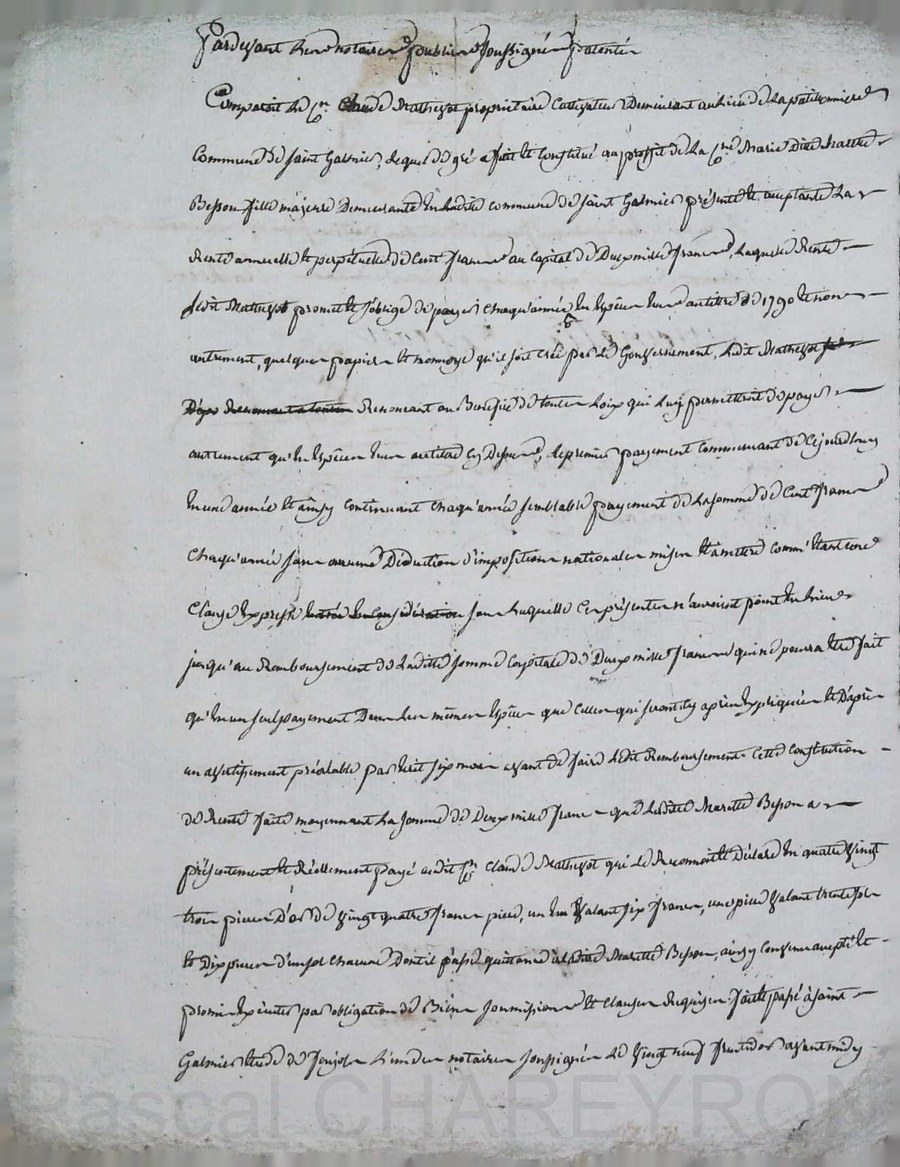 Pardevant les notaires publics soussignés patentés
Comparoit le Cn Claude Mathevot propriétaire cultivateur demeurant au lieu de la
Commune de Saint Galmier, lequel de gré a fait et constitué au proffit de la Cne Marie dite Mariette
Besson fille majeure demeurante en ladite commune de Saint Galmier présente et acceptante la
Rente annuelle et perpétuelle de Cent francs au capital de Deux mille francs, laquelle Rente
ledit Mathevot promet et s'oblige de payer chaqu'année en espèces heure au titre de 1790 et non
autrement, quelques papiers et monnoye qu'il soit créé par le Gouvernement, ledit Mathevot
Renoncant au Benefice de toutes Loix qui luy permettroit de payer
autrement qu'en espèces heure au titre cy dessus, le premier payement commencant de cejourdhuy
en une année et ainsy continuant chaqu'année semblable payement de la somme de Cent francs
chaqu'année sans aucune Déduction d'impositions nationales mises et à mettre comm'étant une
Clause expresse entrée en considération sans laquelle ces présentes n'auroient point eu lieu
jusqu'au Remboursement de ladite somme capitale de Deux mille francs qui ne pourra être fait
qu'en un seul payement Dans les mêmes espèces que celles qui seront cy après expliquées et D'après
un avertissement préalable par écrit six mois avant de faire ledit Remboursement. Cette Constitution
de Rente faite moyennant la somme de Deux mille francs que ladite Mariette Besson a
présentement et réellement payé audit Cn Claude Mathevot qui le Reconnoit et déclare en quatre vingt
trois pièces D'or de vingt quatre francs pièce, un écu valant six francs, une pièce valant trente sols
et Dix pièces d'un sol chacune Dont il passe quittance à ladite Mariette Besson, ainsy convenu accepté et
promis exécuter par obligation de Biens soumissions et clauses Requises. fait et passé à Saint
Galmier étude de Poujol l'un des notaires soussignés le vingt neuf fructidor avant midy